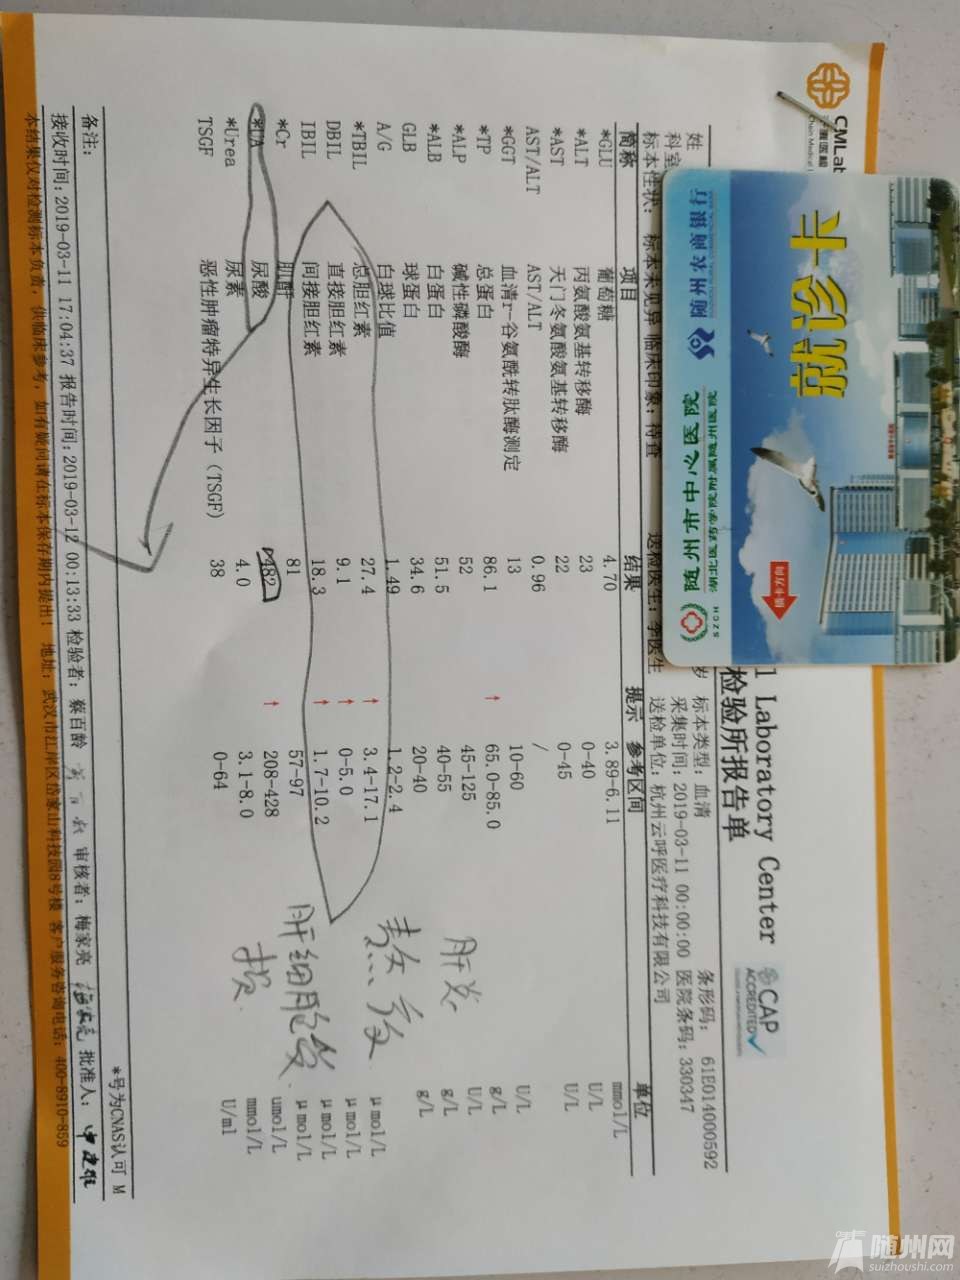 CMLab
l Laboratory Center
检验所报告单
CAP
ACCREDITED
姓
岁 标本类型: 血清
条形码: 61E014000592
科室
采集时间: 2019-03-11 00:00:00 医院条码: 330347
标本性状: 标本未见异 临床印象: 待查
送检医生: 李医生
送检单位: 杭州云呼医疗科技有限公司
简称 项目 结果 提示 参考区间 单位
*GLU 葡萄糖 4.70 3.89-6.11 mmol/L
*ALT 丙氨酸氨基转移酶 23 0-40 U/L
*AST 天门冬氨酸氨基转移酶 22 0-45 U/L
AST/ALT AST/ALT 0.96 /
*GGT 血清γ-谷氨酰转肽酶测定 13 10-60 U/L
*TP 总蛋白 86.1 ↑ 65.0-85.0 g/L
*ALP 碱性磷酸酶 52 45-125 U/L
*ALB 白蛋白 51.5 40-55 g/L
GLB 球蛋白 34.6 20-40 g/L
A/G 白球比值 1.49 1.2-2.4
*TBIL 总胆红素 27.4 ↑ 3.4-17.1 μmol/L
DBIL 直接胆红素 9.1 ↑ 0-5.0 μmol/L
IBIL 间接胆红素 18.3 ↑ 1.7-10.2 μmol/L
*Cr 肌酐 81 57-97 μmol/L
*UA 尿酸 482 ↑ 208-428 umol/L
*Urea 尿素 4.0 3.1-8.0 mmol/L
TSGF 恶性肿瘤特异生长因子(TSGF) 38 0-64 U/ml
肝炎
肝细胞
损
备注:
*号为CNAS认可 M
接收时间: 2019-03-11 17:04:37 报告时间: 2019-03-12 00:13:33 检验者: 蔡百龄 审核者: 梅家亮 批准人:
本结果仅对检测标本负责, 供临床参考, 如有疑问请在标本保存期内提出! 地址: 武汉市江岸区岱家山科技园8号楼 客户服务咨询电话: 400-8910-859
就诊卡
随州农商银行
随州市中心医院
湖北医药学院附属随州医院
SZCH
插卡方向
随州网
suizhoushi.com